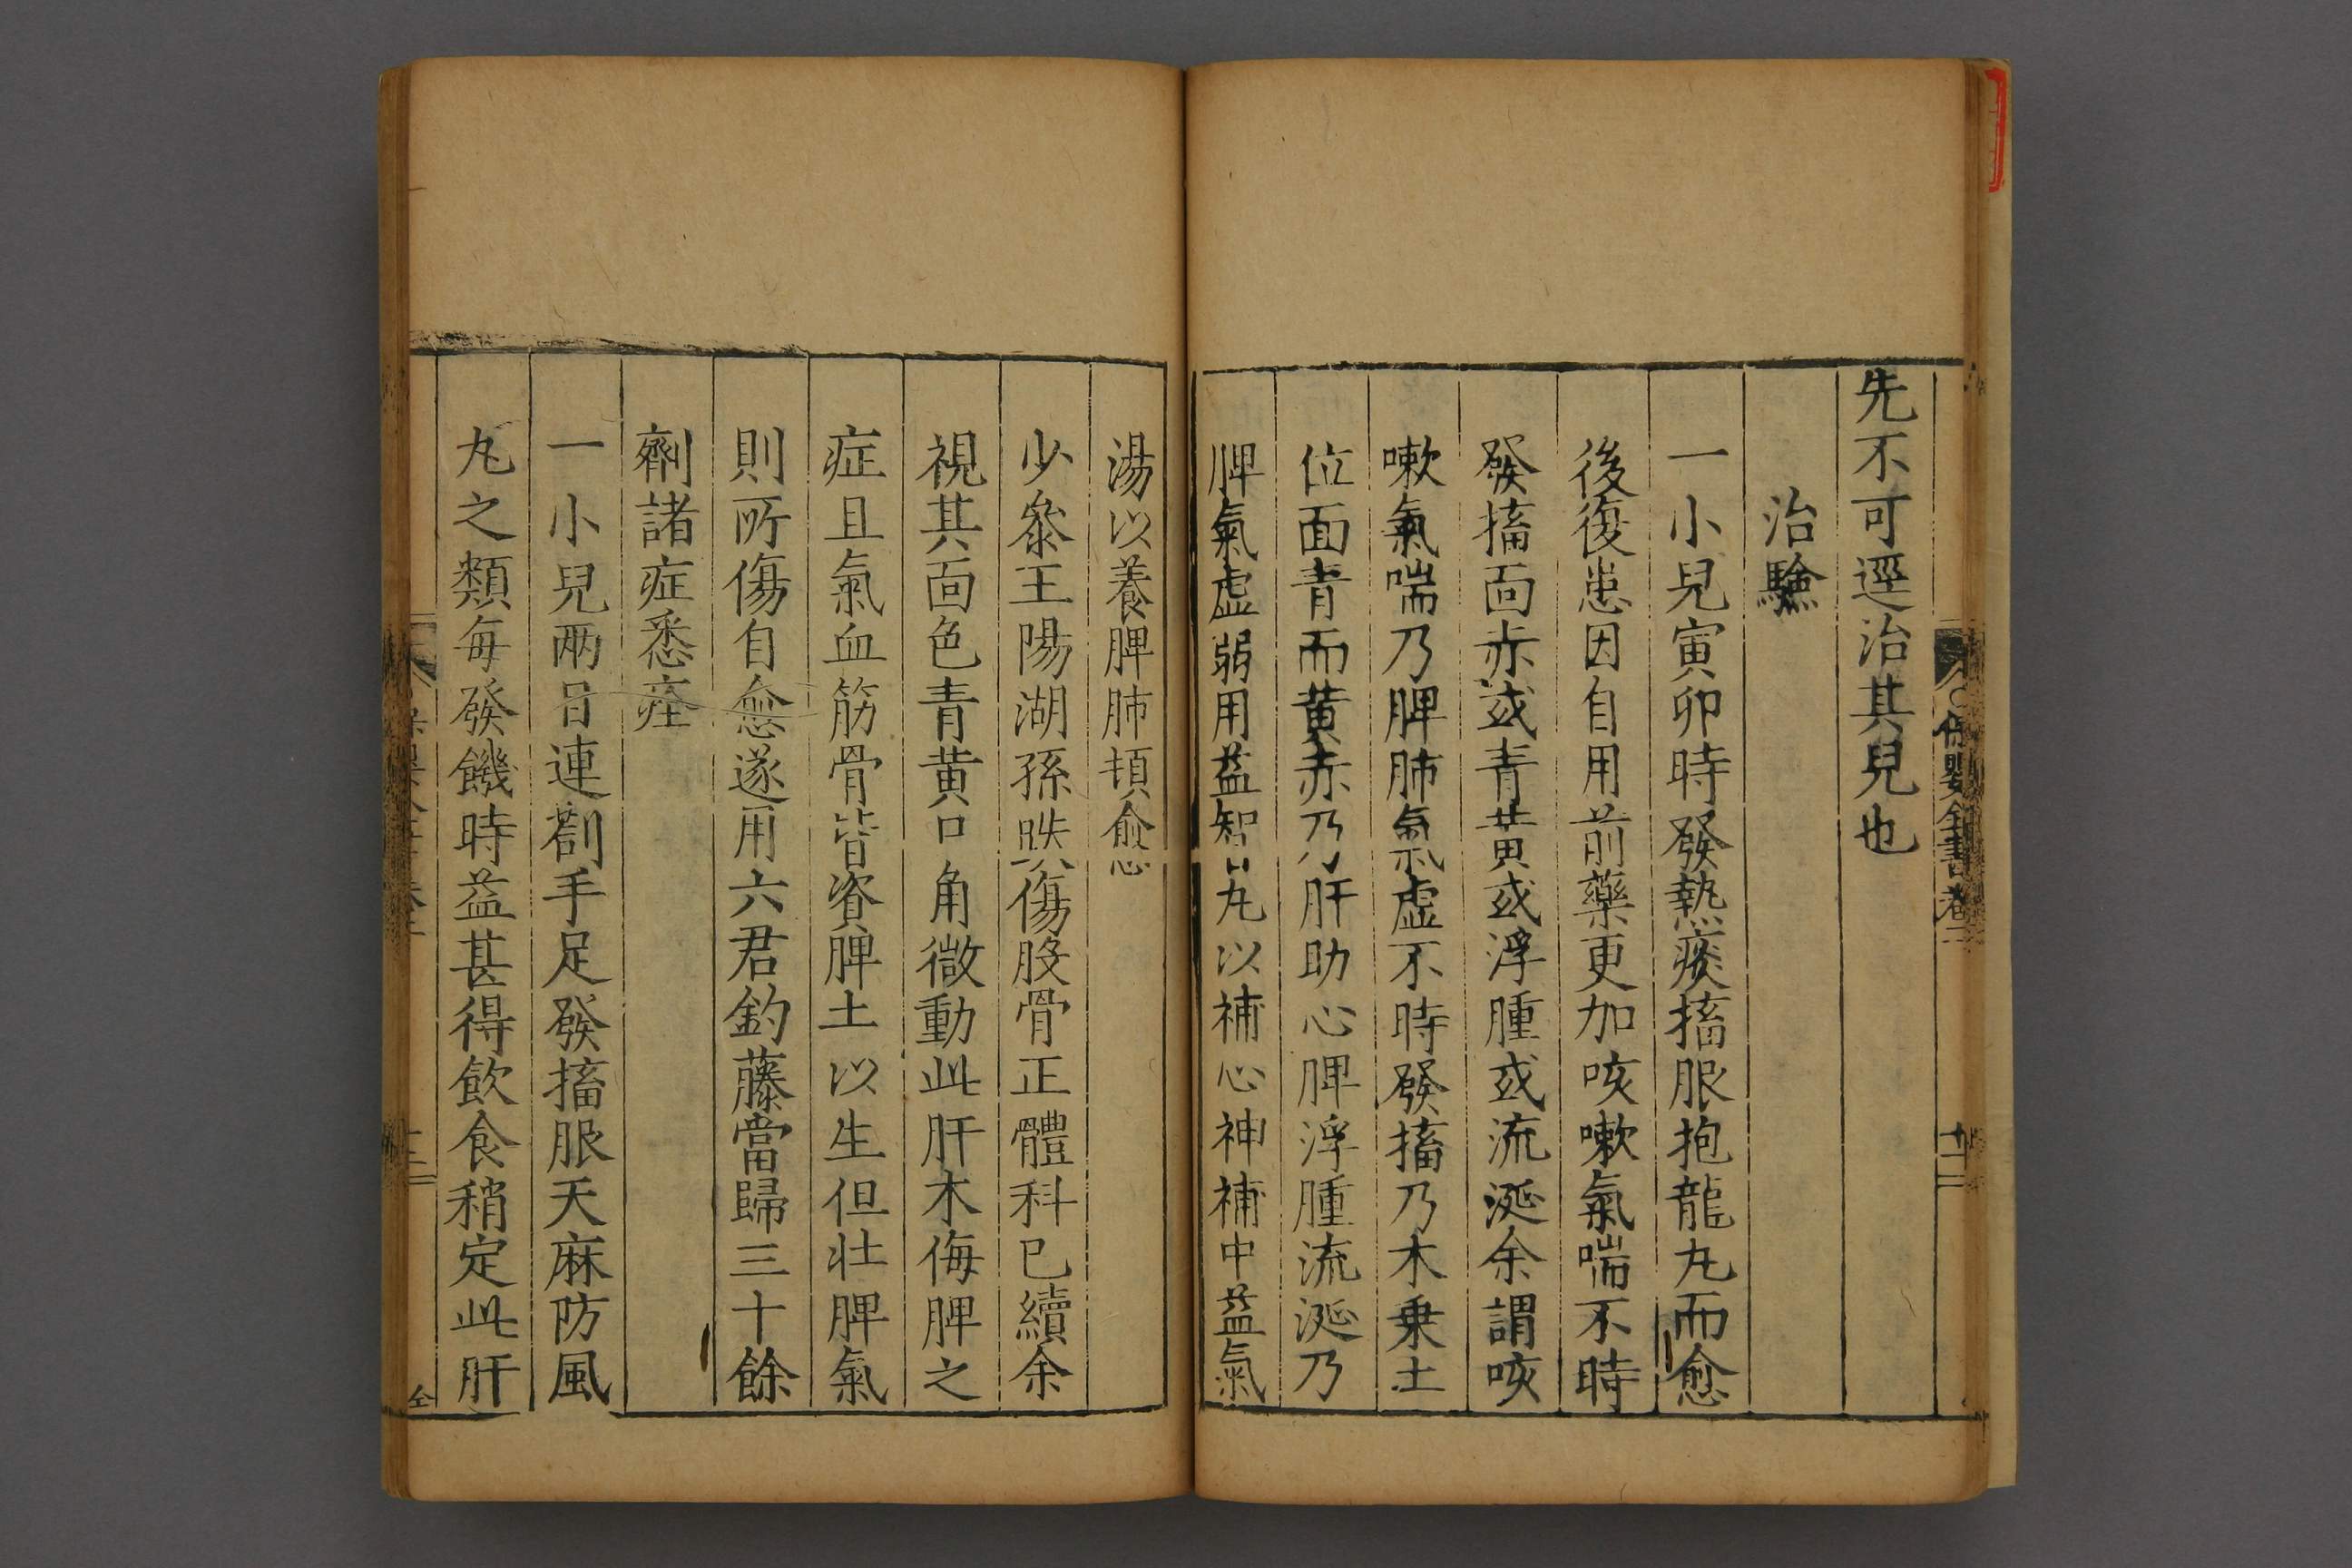 保嬰全書卷三
十二
先不可逕治其兒也
治驗
一小兒寅卯時發熱痰搐服抱龍丸而愈
後復患因自用前藥更加咳嗽氣喘不時
發搐面赤或青黃或浮腫或流涎余謂咳
嗽氣喘乃脾肺氣虛不時發搐乃木乗土
位面青而黃赤乃肝助心脾浮腫流涎乃
脾氣虛弱用益智丸以補心神補中益氣
湯以養脾肺頓愈
少叅王陽湖孫跌傷股骨正體科已續余
視其面色青黃口角微動此肝木侮脾之
症且氣血筋骨皆資脾土以生但壯脾氣
則所傷自愈遂用六君釣藤當歸三十餘
劑諸症悉痊
一小兒兩日連劄手足發搐服天麻防風
丸之類每發饑時益甚得飲食稍定此肝